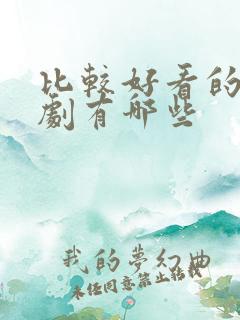 比較好看的
劇有哪些
我的夢幻曲
未經同意禁止轉載